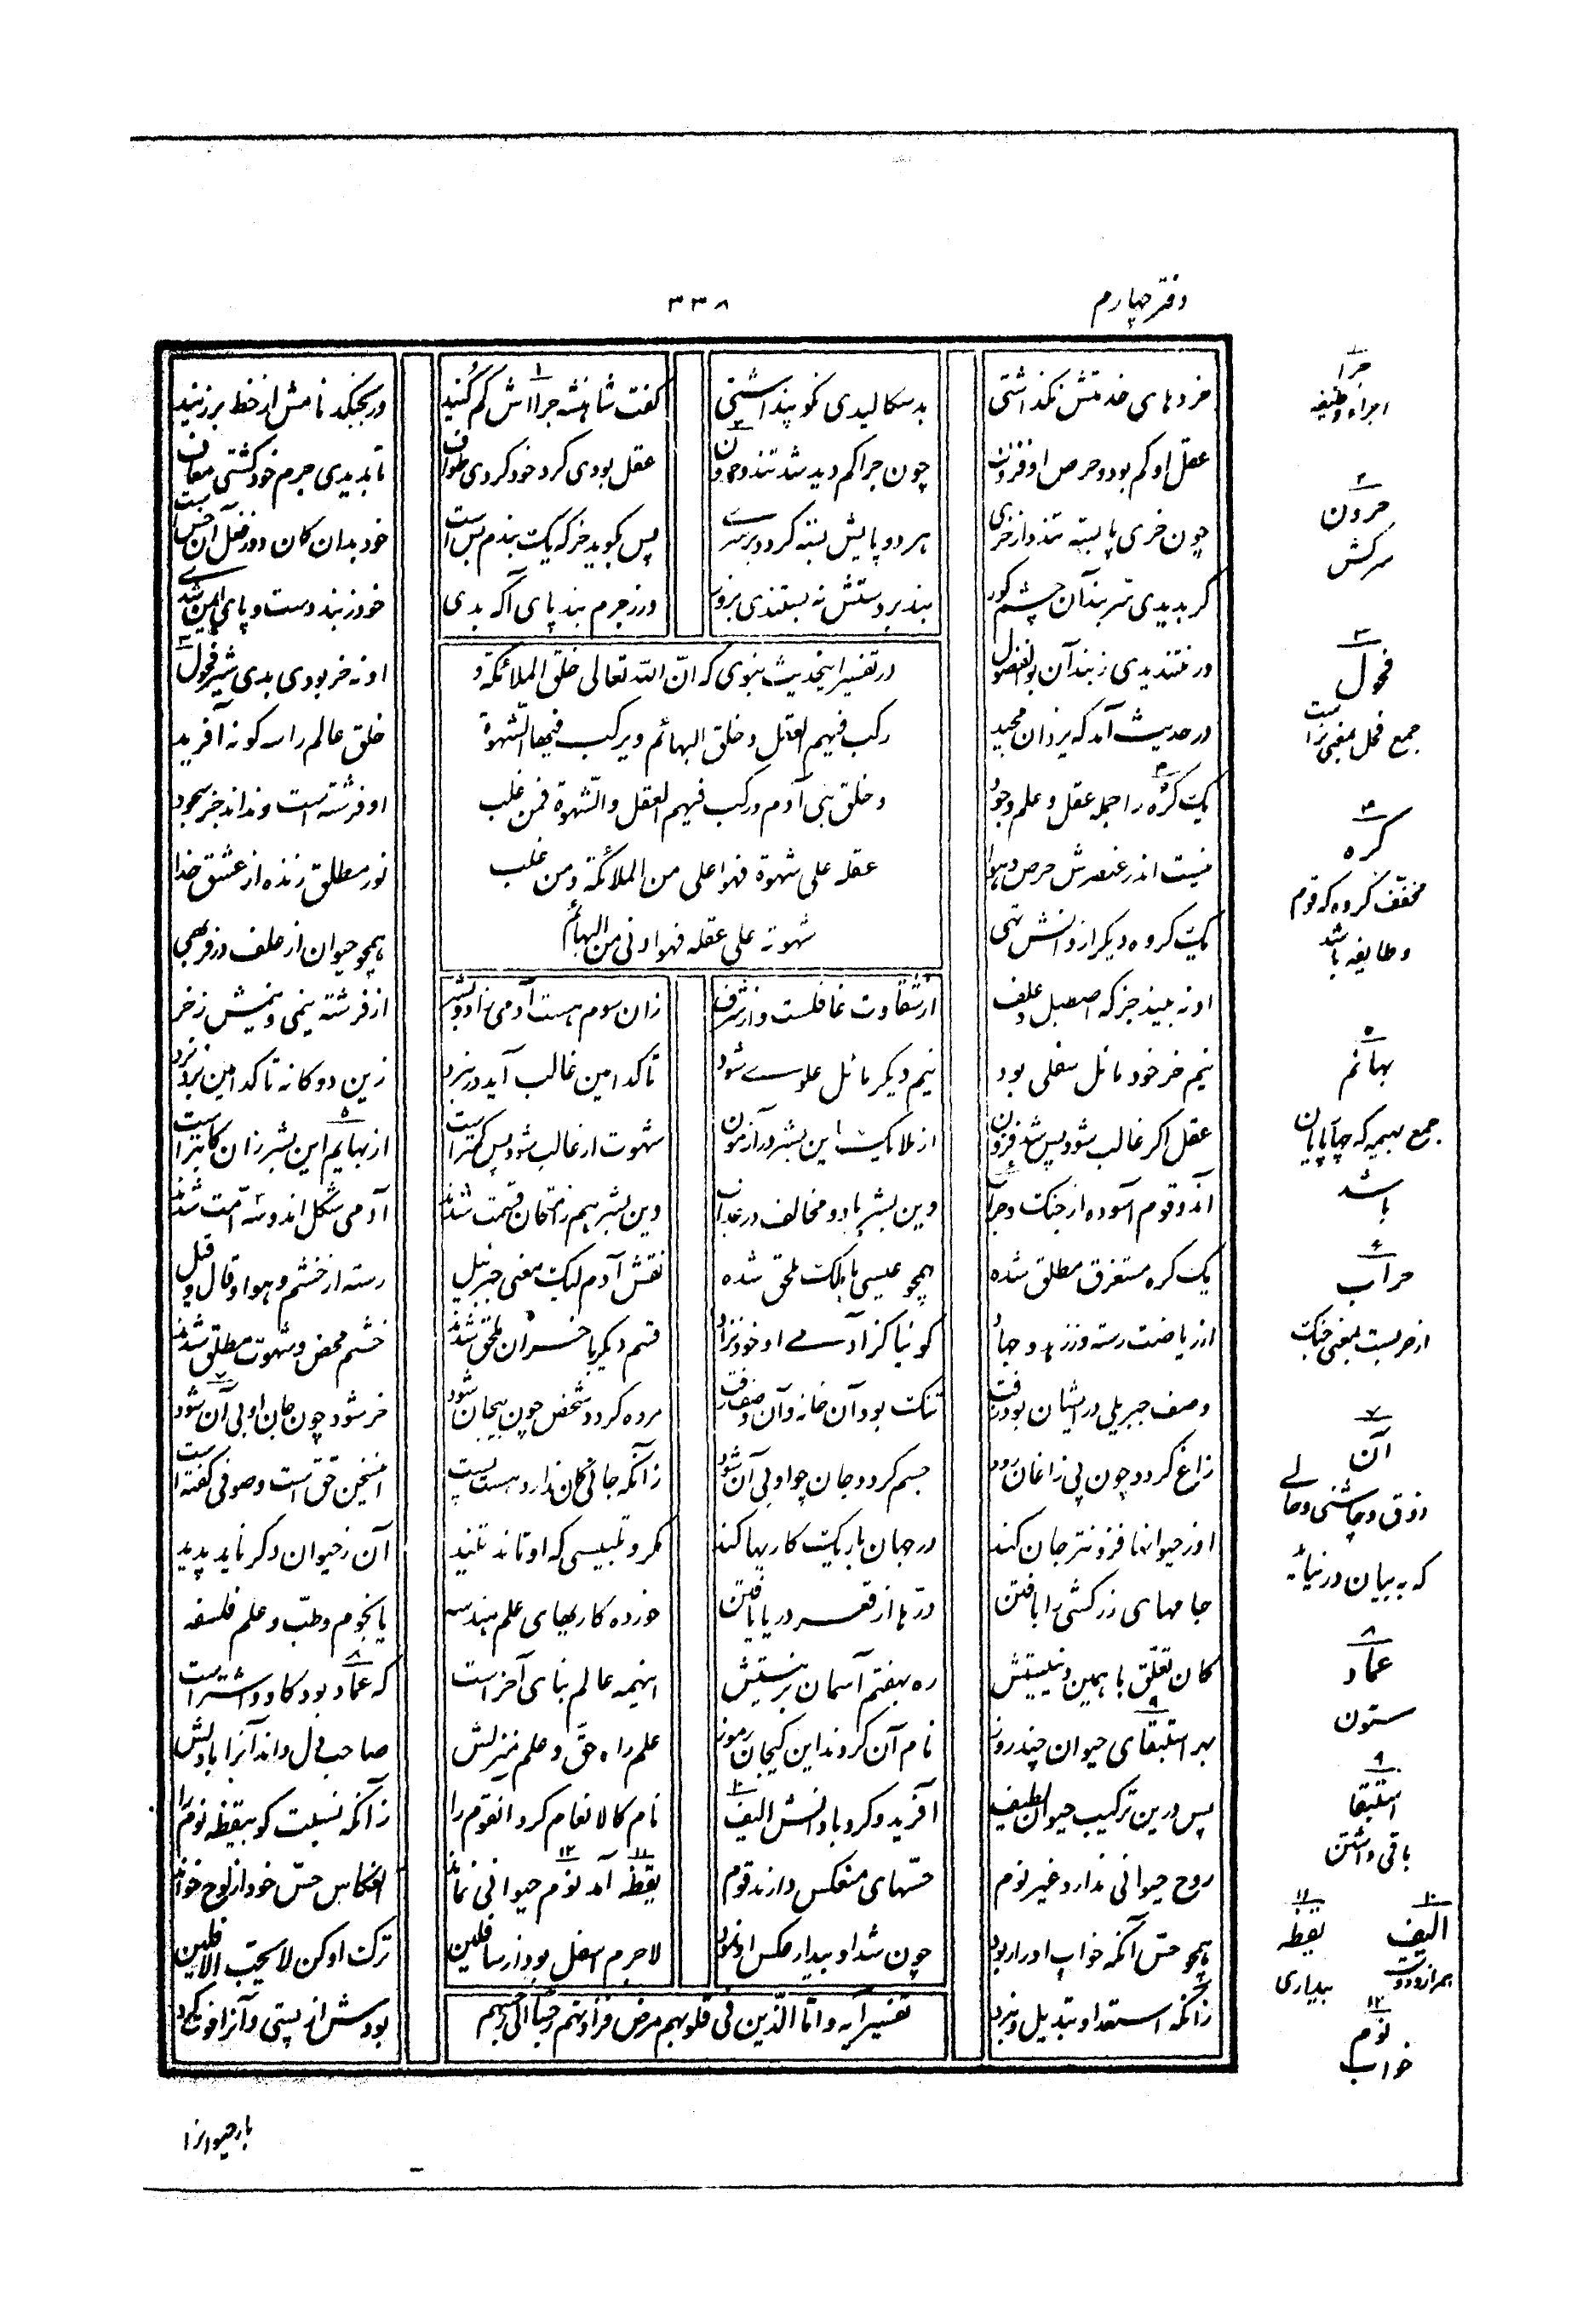 دفتر چهارم
۳۳۸
خردهای خدمتش نگذاشتی بد سکالیدی نکو پنداشتی گفت شاهنشه جرااش کم کنید ور بجنگد نامش از خط بر زنید
عقل او کم بود و حرص او فزون چون جرا کم دید شد تند و حرون عقل بودی گرد خود کردی طواف تا بدیدی جرم خود گشتی معاف
چون خری پابسته تندد از خری هر دو پایش بسته گردد بر سری پس بگوید خر که یک بندم بس است خود بدان کان دو ز فعل آن خس است
گر بدیدی سر بند آن چشم کور بند بر دستش نه بستندی بزور ور ز جرم بند پای آگه بدی خود ز بند دست و پای ایمن شدی
ور نتندیدی ز بند آن بوالفضول او نه خر بودی بدی شیر فحول
در تفسیر اینحدیث نبوی که انّ الله تعالی خلق الملائکة و
رکب فیهم العقل و خلق البهائم و یرکب فیها الشّهوة
و خلق بنی آدم و رکب فیهم العقل و الشّهوة فمن غلب
عقله علی شهوة فهو اعلی من الملائکة و من غلب
شهوته علی عقله فهو ادنی من البهائم
در حدیث آمد که یزدان مجید خلق عالم را سه گونه آفرید
یک کره را جمله عقل و علم و جود او فرشته است و نداند جز سجود
نیست اندر عنصرش حرص و هوا نور مطلق زنده از عشق خدا
یک گروه دیگر از دانش تهی همچو حیوان از علف در فربهی
او نه بیند جز که اصطبل و علف از شقاوت غافلست و از شرف زان سوم هست آدمی زاد و بشر از فرشته نیمی و نیمیش ز خر
نیم خر خود مائل سفلی بود نیم دیگر مائل علوی شود تا کدامین غالب آید در نبرد زین دو گانه تا کدامین برد نرد
عقل اگر غالب شود پس شد فزون از ملائک این بشر در آزمون شهوت ار غالب شود پس کمتر است از بهایم این بشر زان کابتر است
آن دو قوم آسوده از جنگ و حراب وین بشر با دو مخالف در عذاب وین بشر هم ز امتحان قسمت شدند آدمی شکل اند و سه امّت شدند
یک کره مستغرق مطلق شده همچو عیسی با ملک ملحق شده نقش آدم لیک معنی جبرئیل رسته از خشم و هوا و قال و قیل
از ریاضت رسته وز زهد و جهاد گوئیا کز آدمی او خود نزاد قسم دیگر با خران ملحق شدند خشم محض و شهوت مطلق شدند
وصف جبریلی در ایشان بود رفت تنگ بود آن خانه و آن وصف زفت مرده گردد شخص چون بیجان شود خر شود چون جان او بی آن شود
زاغ گردد چون پی زاغان رود جسم گردد جان چو او بی آن شود زآنکه جانی کان ندارد هست پست اینسخن حق است و صوفی گفته است
او ز حیوانها فزونتر جان کند در جهان باریک کاریها کند مکر و تلبیسی که او تاند تنید آن ز حیوان دگر ناید پدید
جامهای زرکشی را بافتن درّها از قعر دریا یافتن خورده کاریهای علم هندسه یا نجوم و طبّ و علم فلسفه
کان تعلّق با همین دنییستش ره بهفتم آسمان بر نیستش اینهمه عالم بنای آخر است که عماد بود گاو و اشتر است
بهر استبقای حیوان چند روز نام آن کردند این گیجان رموز علم راه حقّ و علم منزلش صاحب دل داند آنرا با دلش
پس درین ترکیب حیوان لطیف آفرید و کرد با دانش الیف نام کالانعام کرد آنقوم را زآنکه نسبت کو بیقظه نوم را
روح حیوانی ندارد غیر نوم حسّهای منعکس دارند قوم یقظه آمد نوم حیوانی نماند انعکاس حسّ خود از لوح خواند
همچو حسّ آنکه خواب او را ربود چون شد او بیدار عکس او نمود لاجرم اسفل بود از سافلین ترک او کن لا یحبّ الآفلین
تفسیر آیه و امّا الّذین فی قلوبهم مرض فزادتهم رجساً الی رجسهم
زآنکه استعداد تبدیل و نبرد بودش از پستی و آنرا فوت کرد
باز حیوانرا
۱
جرا
اجراء وظیفه
۲
حرون
سرکش
۳
فحول
جمع فحل بمعنی نر است
۴
کره
مخفّف گروه که قوم
و طایفه باشد
۵
بهائم
جمع بهیمه که چهارپایان
باشد
۶
حراب
از حربست بمعنی جنگ
۷
آن
ذوق و چاشنی و حالی
که به بیان در نیاید
۸
عماد
ستون
۹
استبقا
باقی داشتن
۱۰
الیف
همراز و دوست
۱۱
یقظه
بیداری
۱۲
نوم
خواب